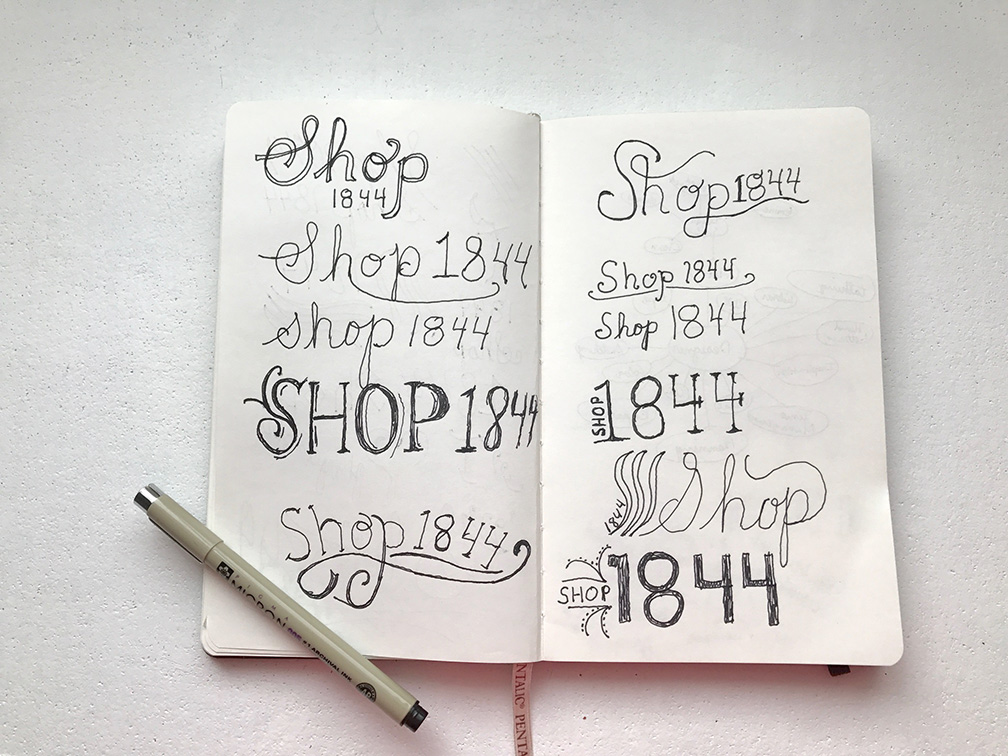 Shop
1844
Shop 1844
shop 1844
SHOP 1844
Shop 1844
Shop 1844
Shop 1844
Shop 1844
SHOP 1844
1844 Shop
SHOP 1844
MICRON 005 ARCHIVAL INK
NTALIC® PENTA